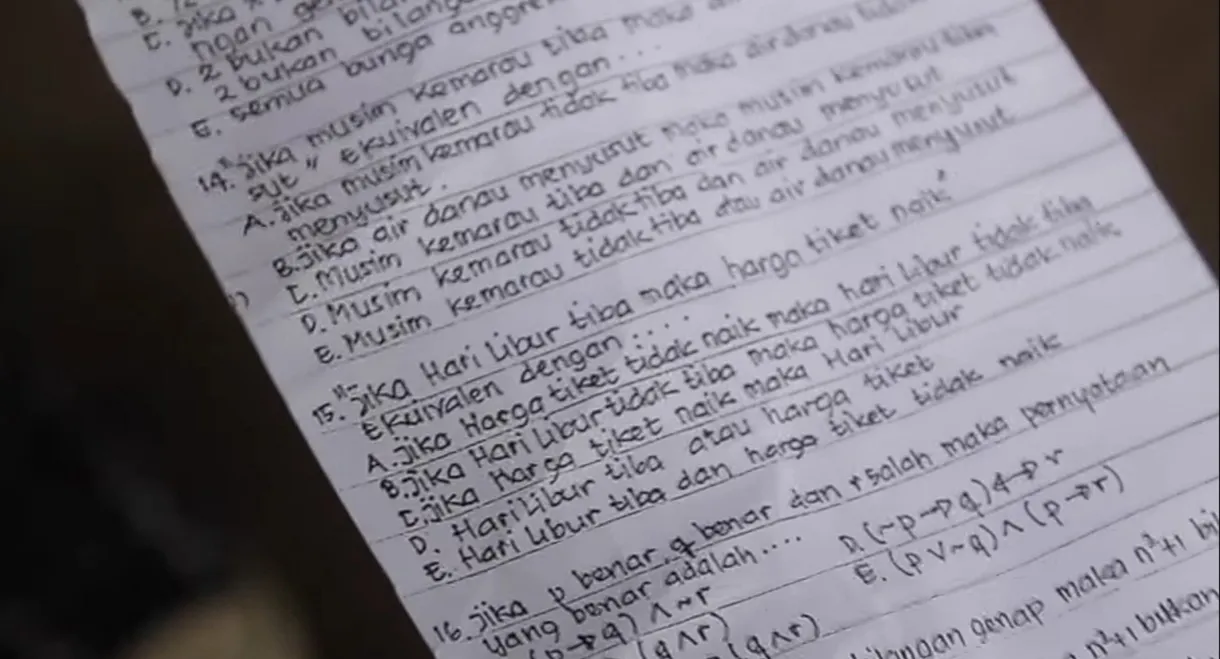 C. Jika
ngan
D. 2 bukan
2 bukan
E. Semua bunga anggre
14. "Jika musim kemarau tiba maka
sut" ekuivalen dengan....
A. Jika musim kemarau tidak tiba maka air danau
menyusut.
B. Jika air danau menyusut maka musim kemarau tiba
C. Musim kemarau tiba dan air danau menyusut
D. Musim kemarau tidak tiba dan air danau menyusut
E. Musim kemarau tidak tiba atau air danau menyusut
15. "Jika Hari Libur tiba maka harga tiket naik"
Ekuivalen dengan....
A. Jika Harga tiket tidak naik maka hari libur tidak tiba
B. Jika Hari Libur tidak tiba maka harga tiket tidak naik
C. Jika Harga tiket naik maka Hari Libur
D. Hari Libur tiba atau harga tiket
E. Hari Libur tiba dan harga tiket tidak naik
16. Jika p benar, q benar dan r salah maka pernyataan
yang benar adalah....
q) ∧ ~r
D. (~p → q) ↔ r
(q ∧ r)
E. (p ∨ ~q) ∧ (p → r)
(q ∧ r)
genap maka n²+1 bil
n²+1 bukan